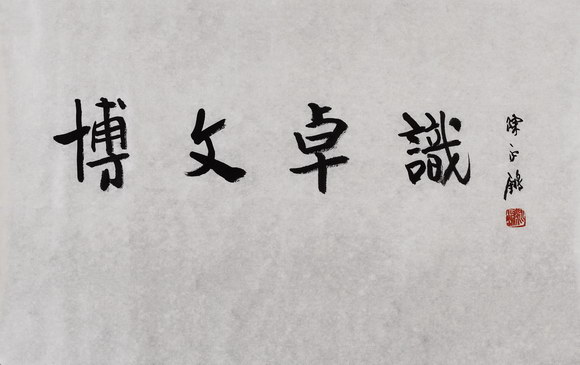 博文卓識
陈正